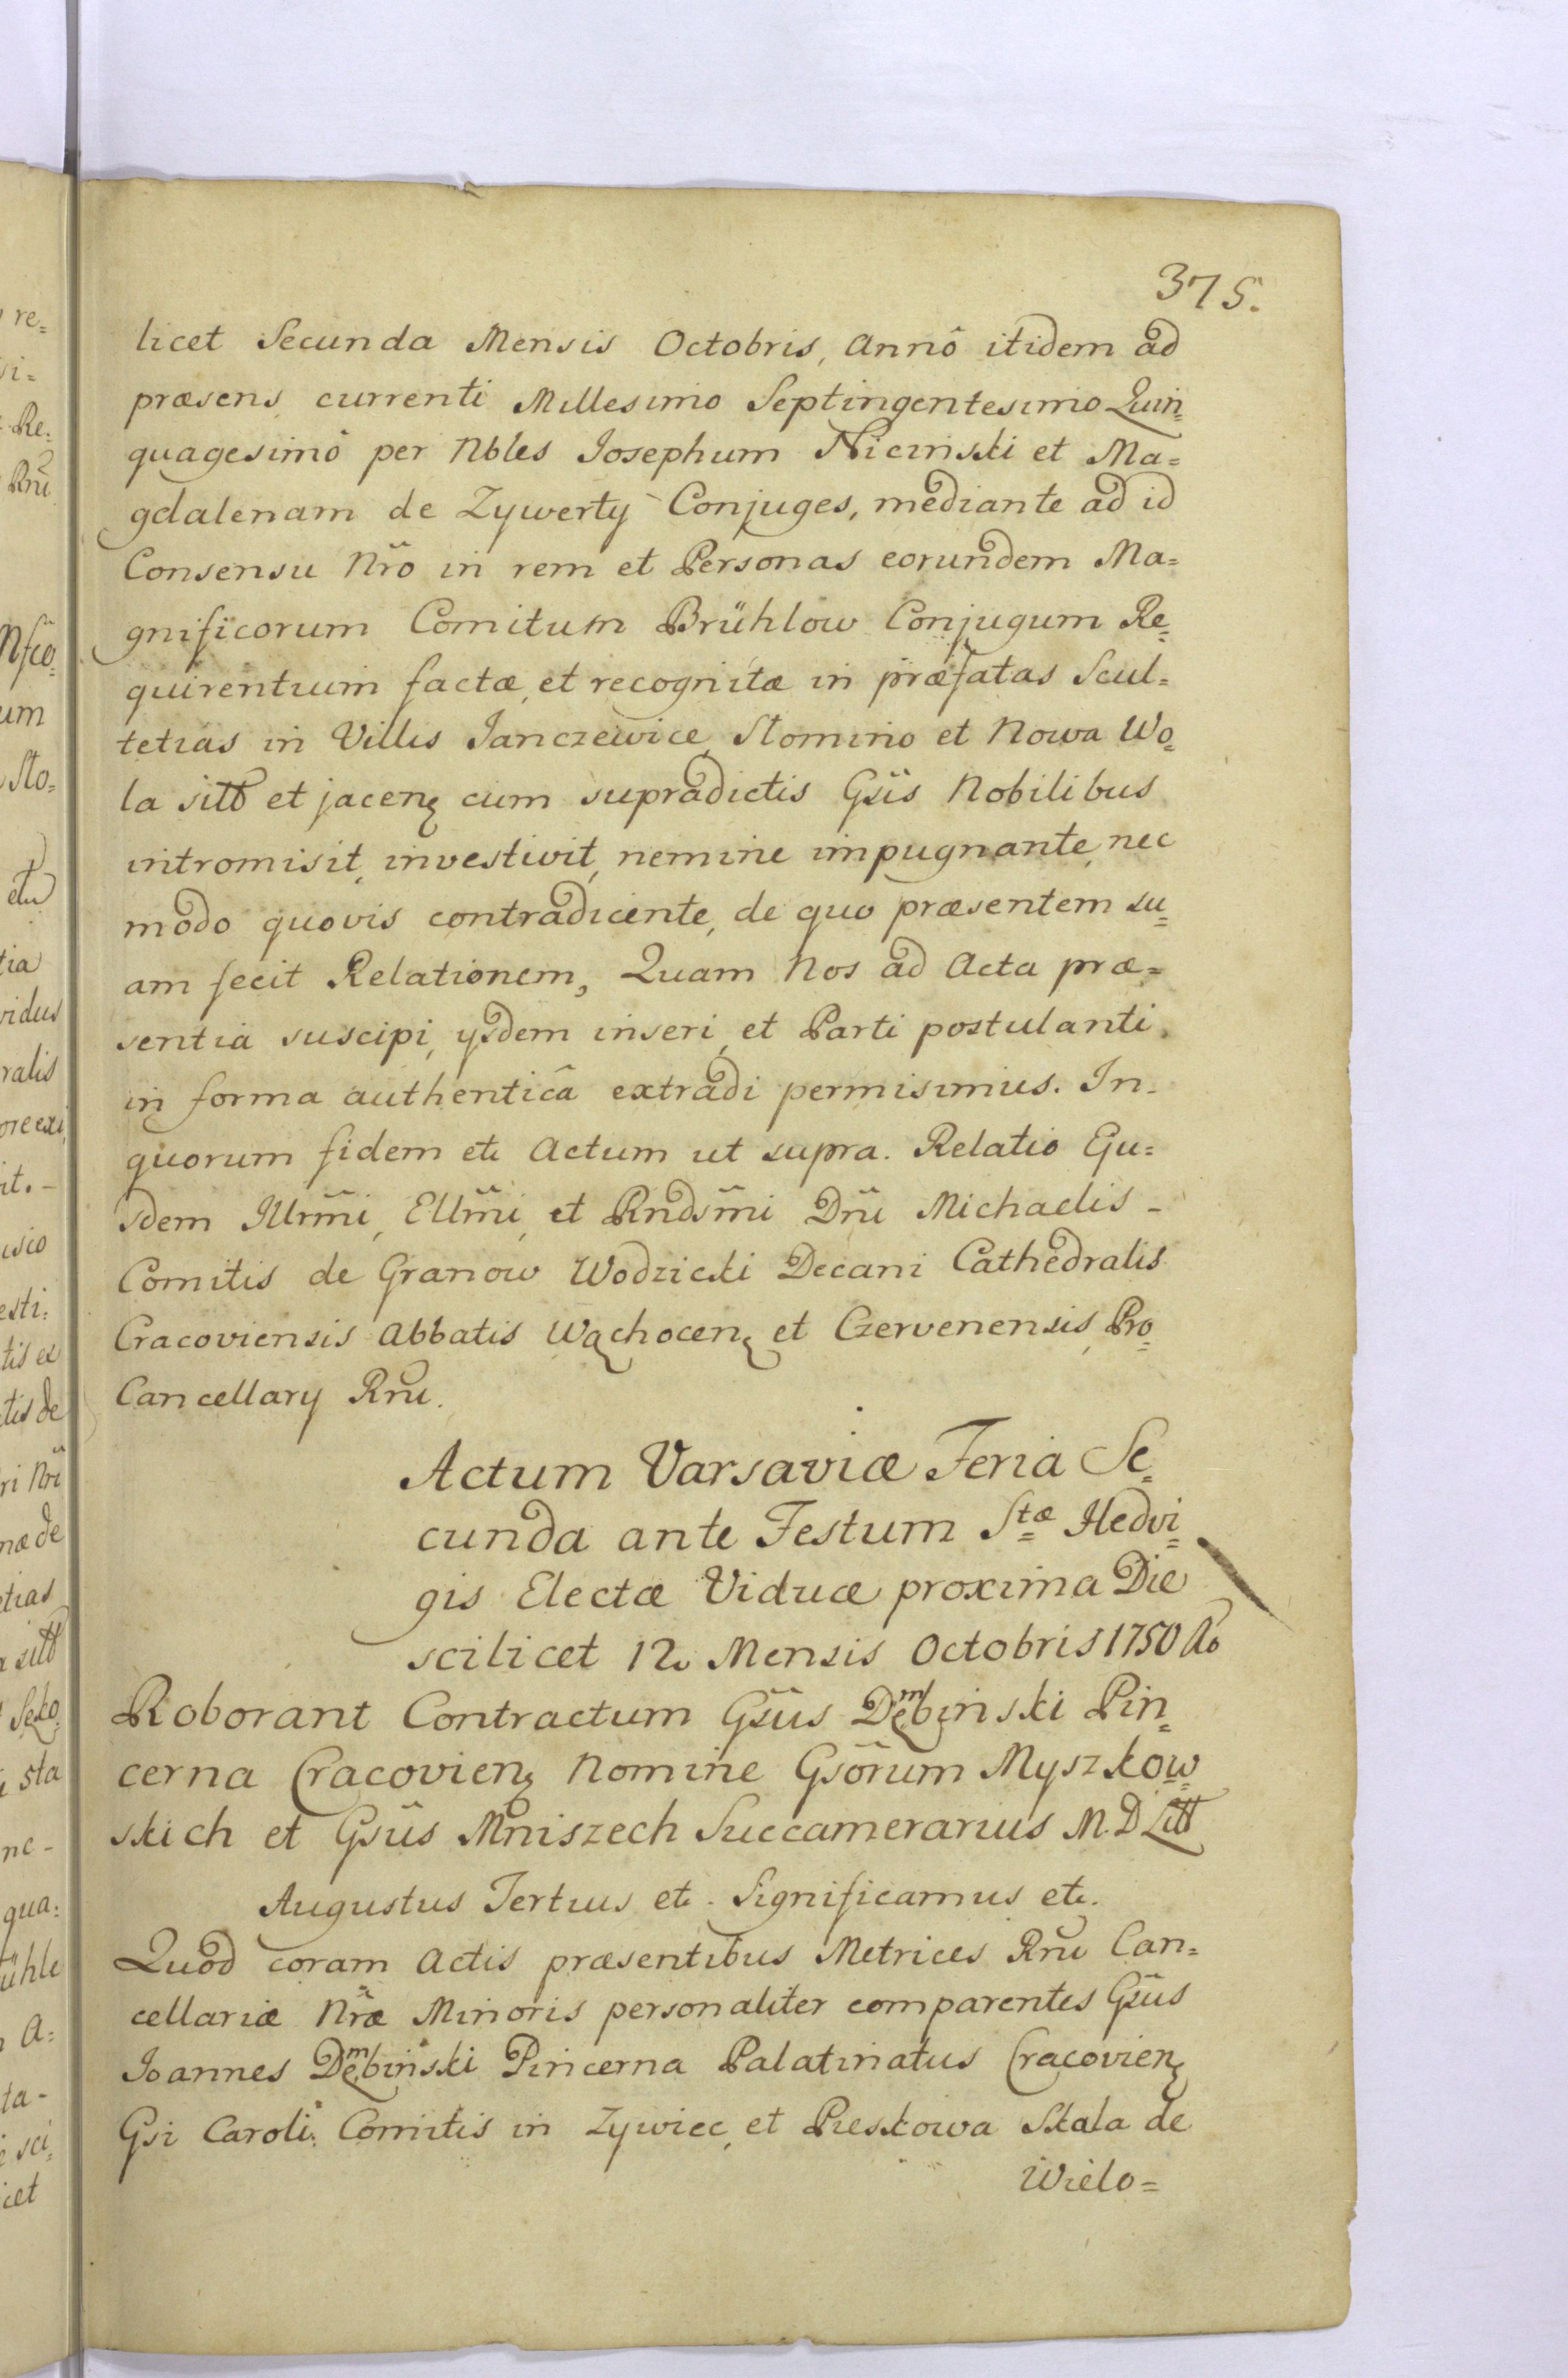 375.
licet Secunda Mensis Octobris, Annô itidem ad
præsens currenti Millesimo Septingentesimo Quin=
quagesimô per Nbles Josephum Nicinski et Ma=
gdalenam de Zywerty Conjuges, mediante ad id
Consensu Nr̃o in rem et Personas eorundem Ma=
gnificorum Comitum Brühlow Conjugum Re=
quirentium factæ, et recognitæ in præfatas Scul=
tetias in Villis Janczewice, Slomino et Nowa Wo=
la sitt et jacenȩ cum supradictis Gs̃is Nobilibus
intromisit, investivit, nemine impugnante, nec
modo quovis contradicente, de quo præsentem su=
am fecit Relationem, Quam Nos ad Acta præ=
sentia suscipi, ysdem inseri, et Parti postulanti
in forma authenticâ extradi permisimus. In=
quorum fidem etc Actum ut supra. Relatio Eju=
sdem Illrm̃i, Ellm̃i, et Rndsm̃i Dñi Michaelis -
Comitis de Granow Wodzicki Decani Cathedralis
Cracoviensis Abbatis Wąchocenȩ et Czervenensis, Pro=
Cancellary Rñi.
Actum Varsaviæ Feria Se=
cunda ante Festum Stæ Hedvi=
gis Electæ Viduæ proxima Die
scilicet 12. Mensis Octobris 1750 Ao
Roborant Contractum Gs̃us Dęmbinski Pin=
cerna Cracovienȩ Nomine Gsõrum Myszkow=
skich et Gs̃us Mniszech Succamerarius M.D Litt
Augustus Tertius etc. Significamus etc.
Quod coram Actis præsentibus Metrices Rñi Can=
cellariæ Nr̃æ Minoris personaliter comparentes Gs̃us
Joannes Dęmbinski Pincerna Palatinatus Cracovienȩ
Gsi Caroli Comitis in Zywiec, et Pieskowa Skala de
Wielo=